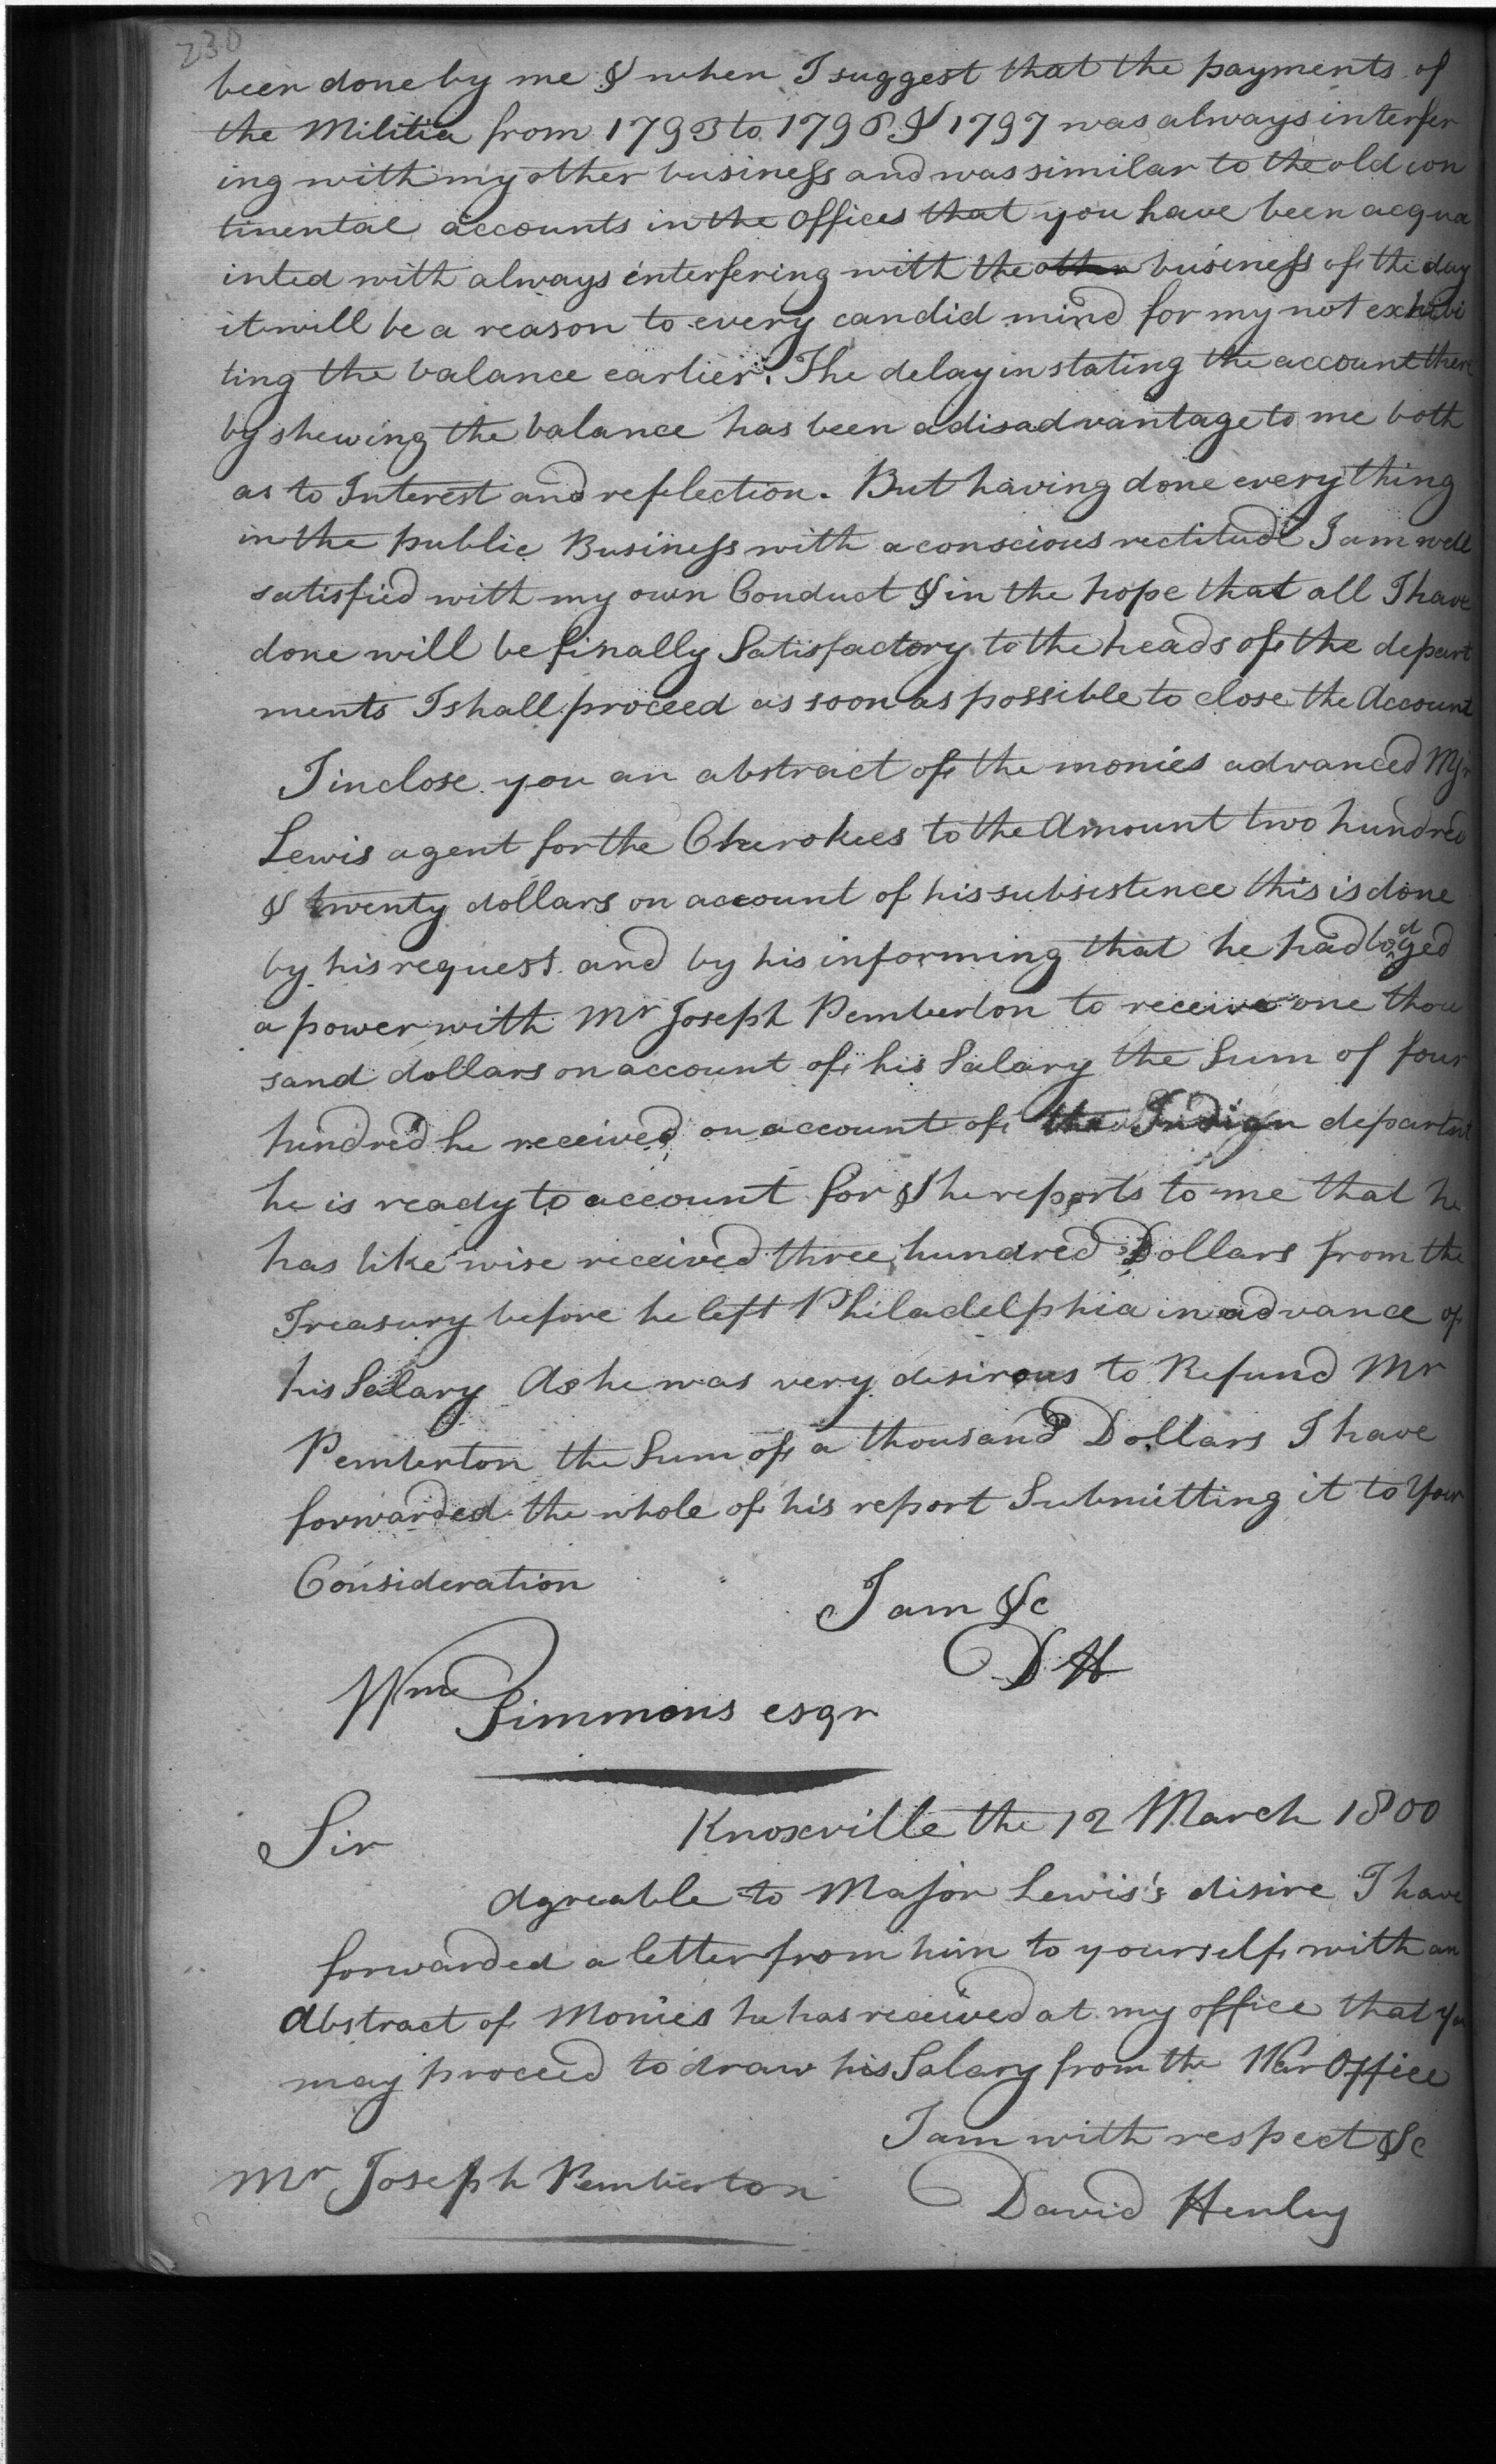 230
been done by me & when I suggest that the payments of
the Militia from 1793 to 1796 & 1797 was always interfer
ing with my other business and was similar to the old con
tinental accounts in the Offices that you have been acqua
inted with always interfering with the other business of the day
it will be a reason to every candid mind for my not exhibi
ting the balance earlier. The delay in stating the account there
by shewing the balance has been a disadvantage to me both
as to Interest and reflection. But having done every thing
in the public Business with a conscious rectitude I am well
satisfied with my own Conduct & in the hope that all I have
done will be finally Satisfactory to the heads of the depart
ments I shall proceed as soon as possible to close the Account
I inclose you an abstract of the monies advanced Mjr
Lewis agent for the Cherokees to the Amount two hundred
& twenty dollars on account of his subsistence this is done
by his request and by his informing that he had lodged
a power with Mr Joseph Pemberton to receive one thou
sand dollars on account of his Salary the Sum of four
hundred he received on account of the Indian departmt
he is ready to account for & he reports to me that he
has like wise received three hundred Dollars from the
Treasury before he left Philadelphia in advance of
his Salary As he was very desirous to Refund Mr
Pemberton the Sum of a thousand Dollars I have
forwarded the whole of his report Submitting it to Your
Consideration
I am &c
D H
Wm Simmons esqr
Knoxville the 12 March 1800
Sir
Agreable to Major Lewis's disire I have
forwarded a letter from him to yourself with an
Abstract of Monies he has received at my office that you
may proceed to draw his Salary from the War Office
I am with respect &c
Mr Joseph Pemberton
David Henley